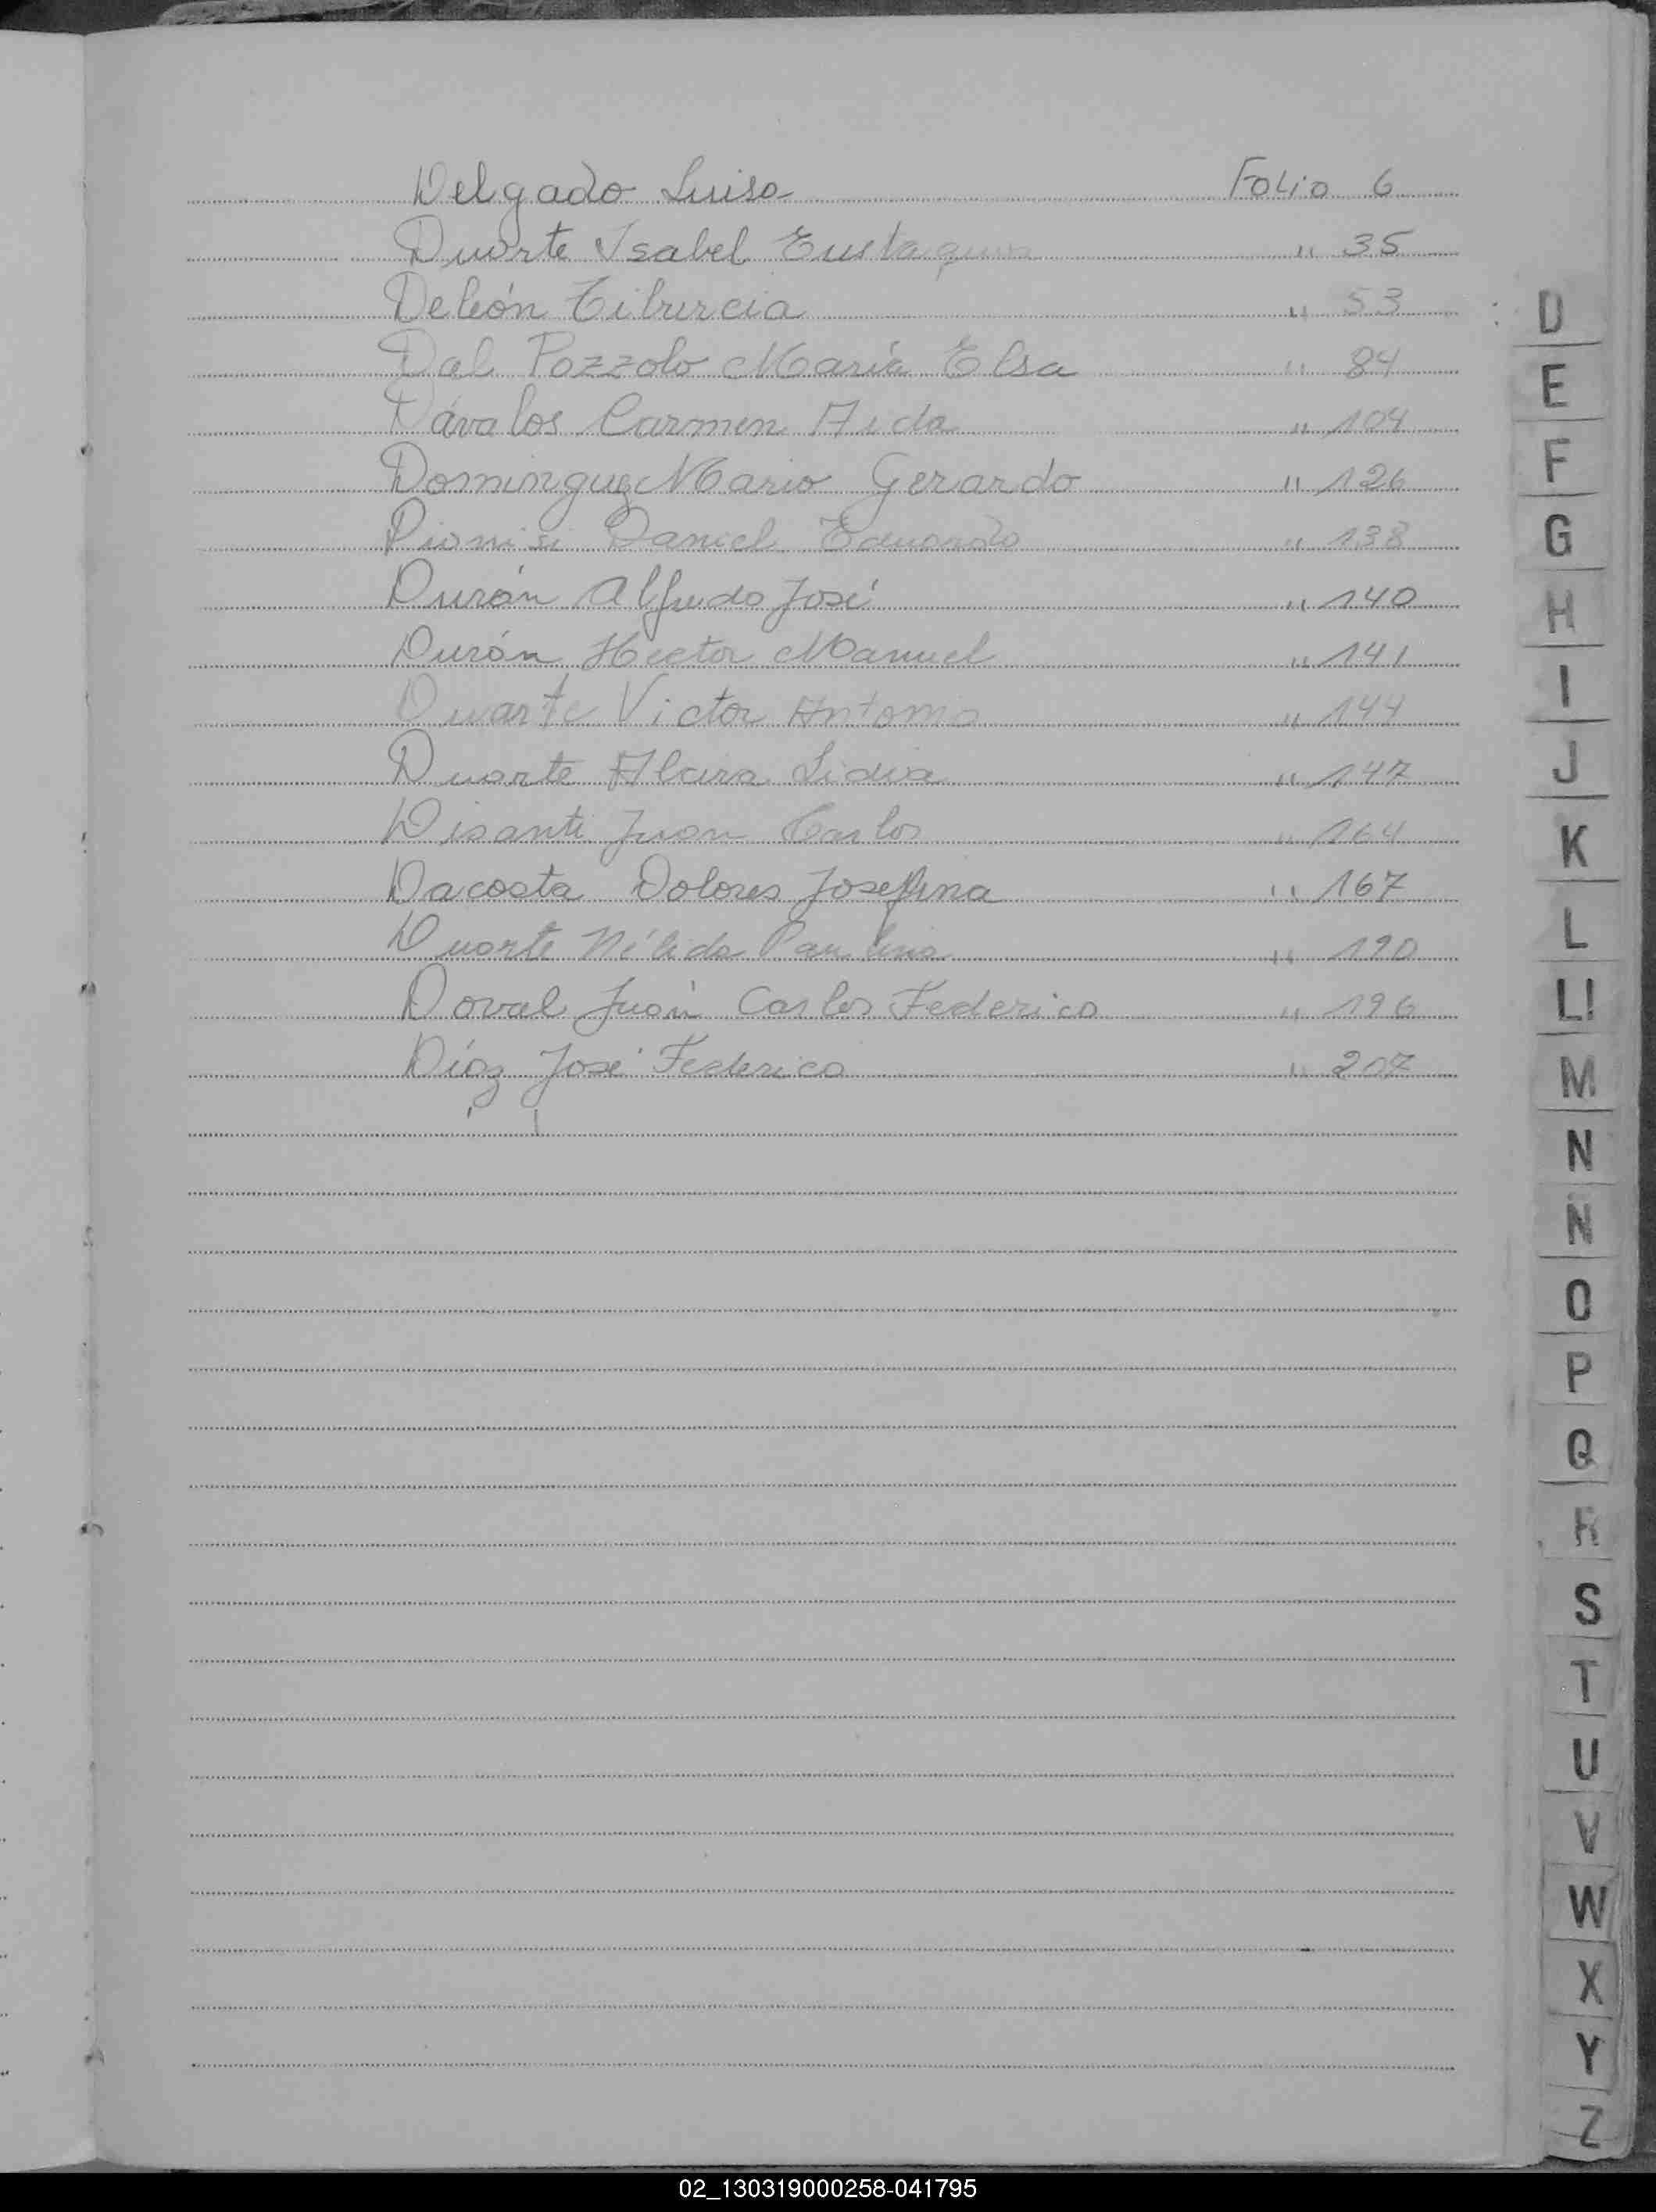 Delgado Luisa Folio 6
Duarte Isabel Eustaquia " 35
Deleón Tiburcia " 53
Dal Pozzolo María Elsa " 84
Dávalos Carmen Aida " 104
Dominguez Mario Gerardo " 126
Dionisi Daniel Eduardo " 138
Durán Alfredo José " 140
Durán Hector Manuel " 141
Duarte Victor Antonio " 144
Duarte Alcira Lidia " 147
Disanti Juan Carlos " 164
Dacosta Dolores Josefina " 167
Duarte Nélida Paulina " 190
Doval Juan Carlos Federico " 196
Díaz José Federico " 207
D
E
F
G
H
I
J
K
L
Ll
M
N
N
O
P
Q
R
S
T
U
V
W
X
Y
Z
02_130319000258-041795